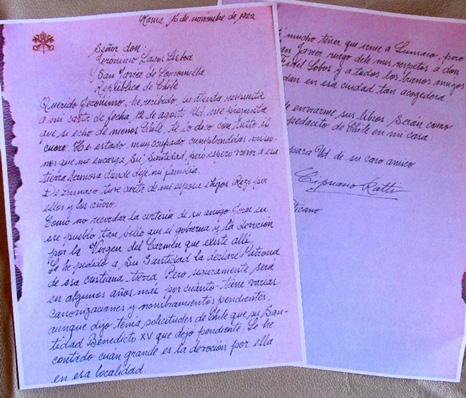 Roma, 16 de noviembre de 1922
Señor don
Geronimo Lagos Lisboa
San Javier de Loncomilla
República de Chile
Querido Geronimo, he recibido su atenta respuesta
a mi carta de fecha 12 de agosto. Ud. me pregunta
que si echo de menos Chile, te lo dico con tutto il
cuore. He estado muy ocupado cumpliendo las misio-
nes que me encarga Su Santidad, pero espero volver a esa
tierra hermosa donde deje mi familia.
De Linares tuve carta de mi esposa, ruego por
ellos y los añoro.
Como no recordar la cortesia de su amigo
su pueblo tan bello que el gobierna y la devoción
por la Virgen del Carmen que existe alli.
Yo he pedido a Su Santidad la declare Patrona
de esa cristiana tierra. Pero seguramente será
en algunos años más por cuanto tiene varias
canonizaciones y nombramientos pendientes,
aunque dijo tenia solicitudes de Chile que su San-
tidad Benedicto XV que dejo pendiente. Le he
contado cuan grande es la devoción por ella
en esa localidad.
mucho tener que irme a Linares, pero
en Javier ruego dele mis respetos a don
Fidel Lobos y a todos los buenos amigos
en esa ciudad tan acogedora.
de enviarme sus libros. Serán como
pedacito de Chile en mi casa
para Ud. de su caro amico
Cipriano Ratti